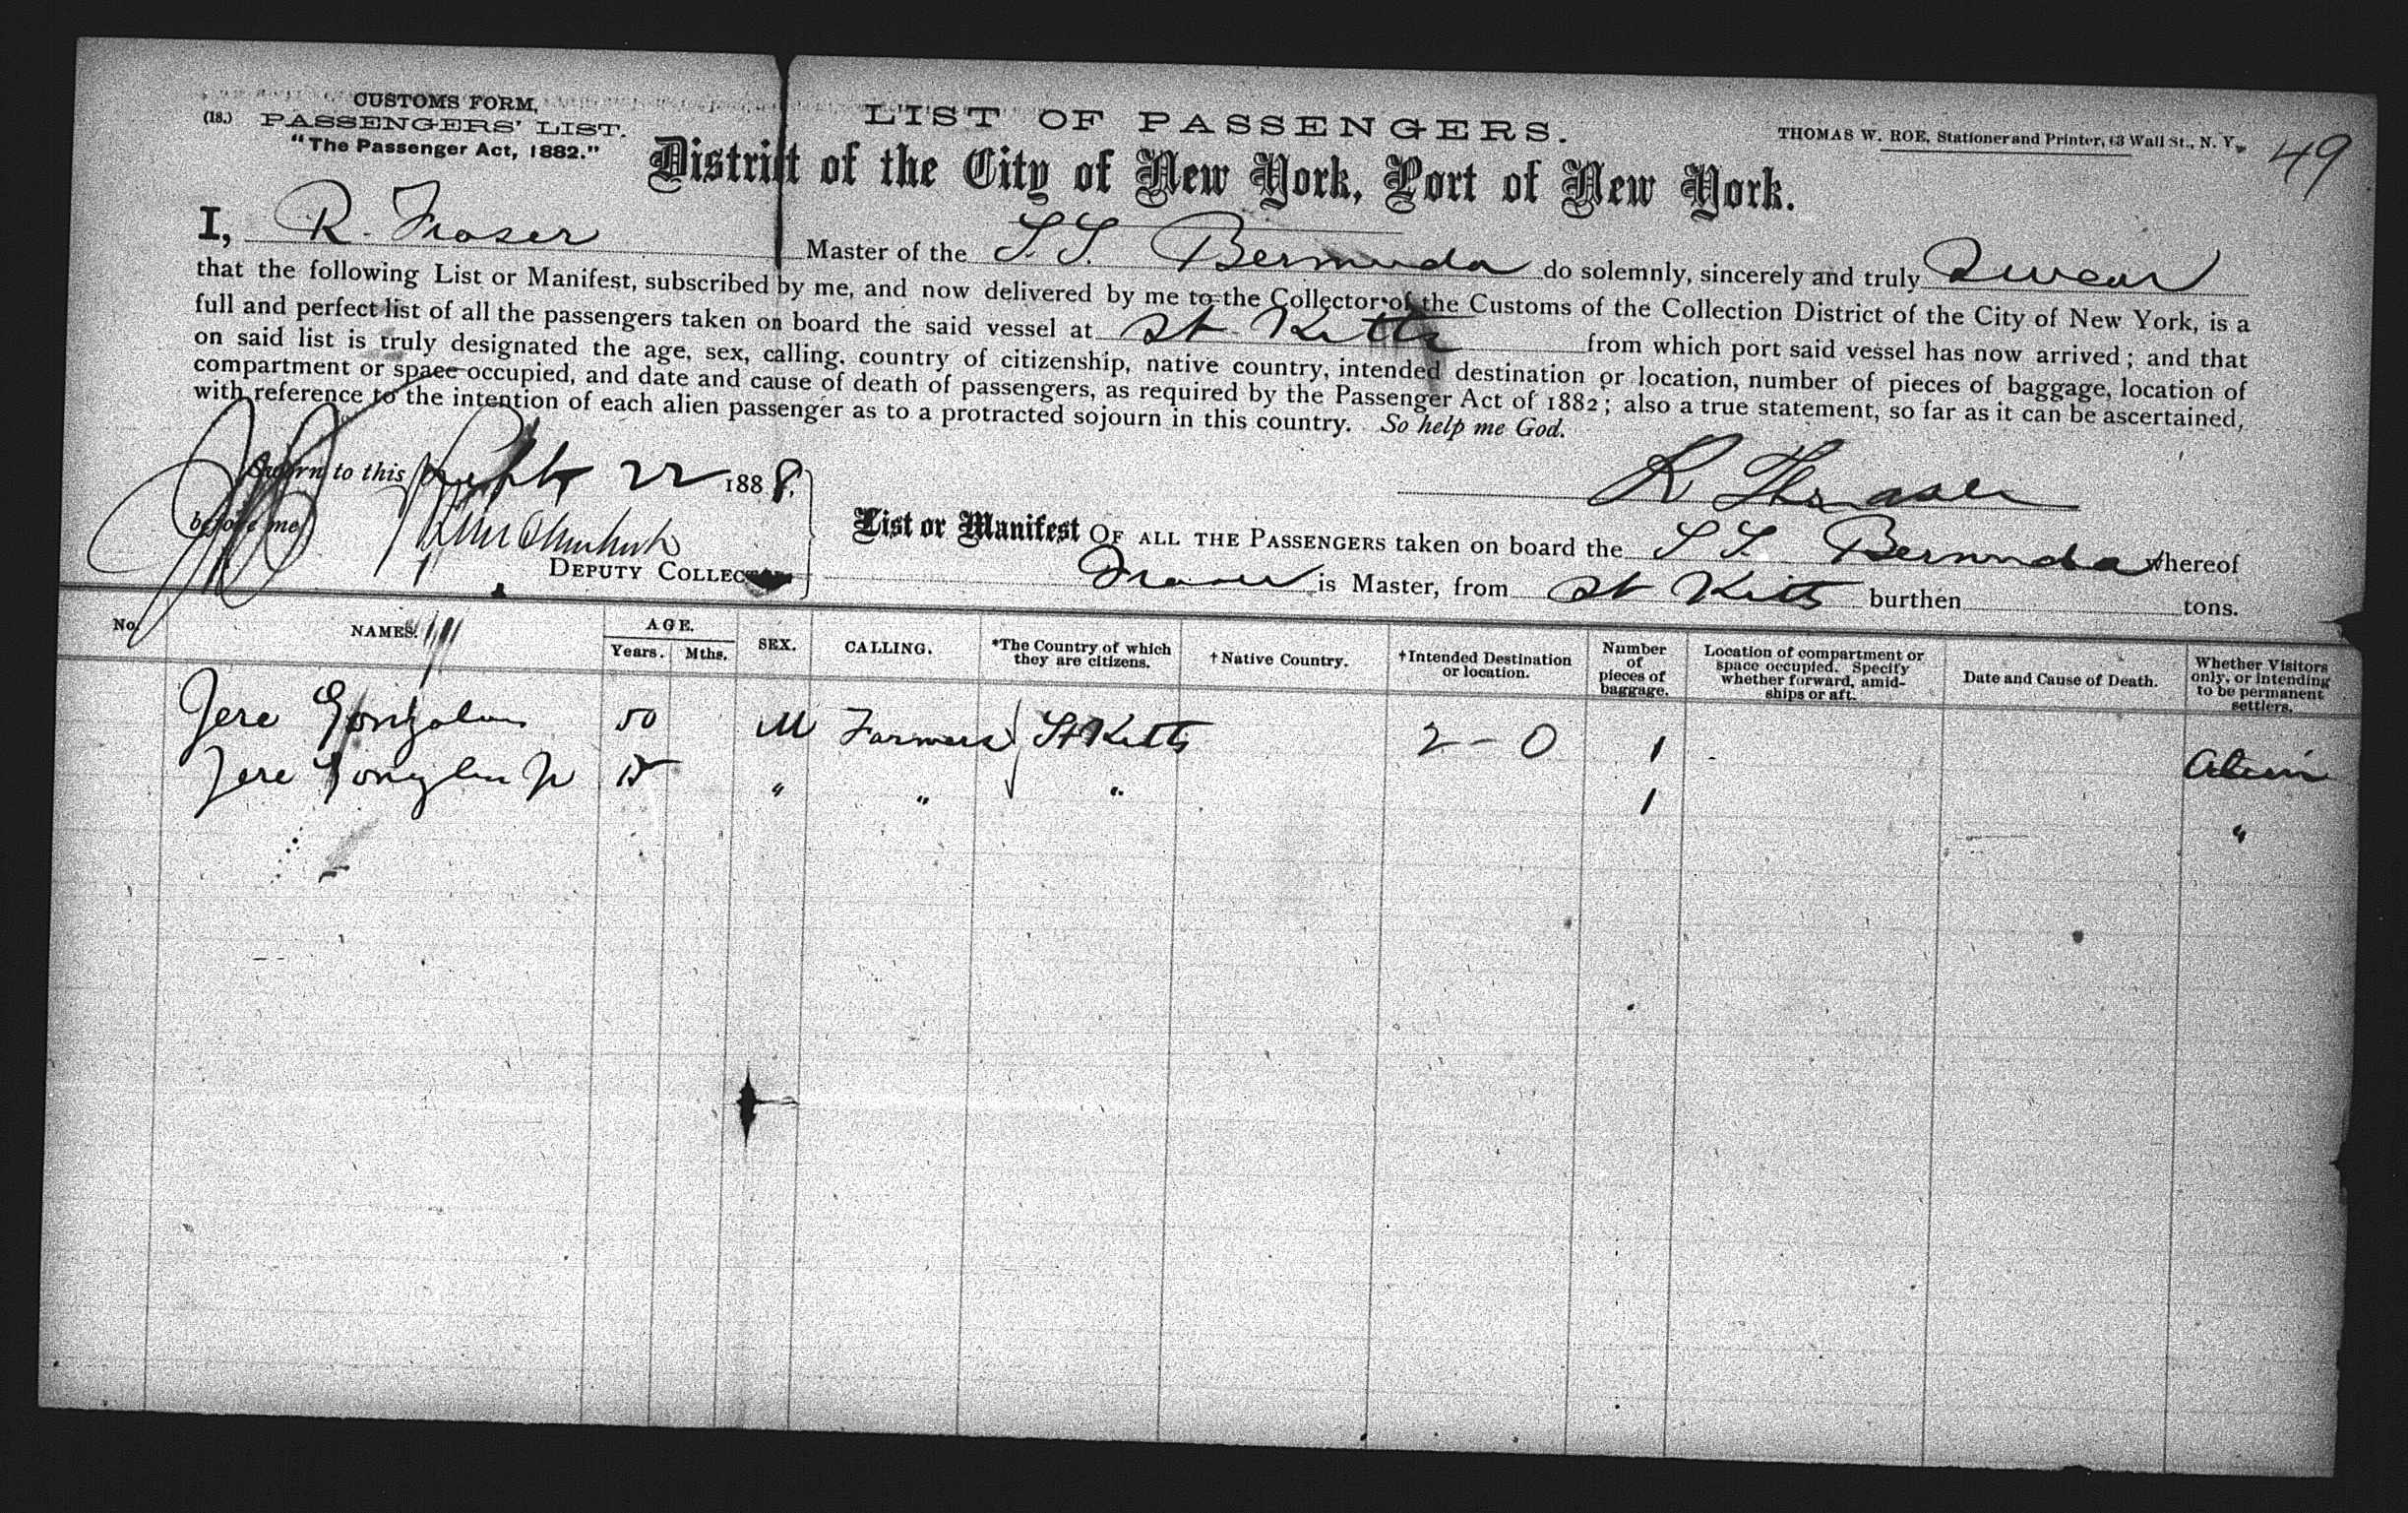 CUSTOMS FORM,
(18.) PASSENGERS' LIST.
"The Passenger Act, 1882."
LIST OF PASSENGERS.
THOMAS W. ROE, Stationer and Printer, 63 Wall St., N. Y.
49
District of the City of New York, Port of New York.
I, R. Fraser Master of the S.S. Bermuda do solemnly, sincerely and truly Swear
that the following List or Manifest, subscribed by me, and now delivered by me to the Collector of the Customs of the Collection District of the City of New York, is a
full and perfect list of all the passengers taken on board the said vessel at St. Kitts from which port said vessel has now arrived; and that
on said list is truly designated the age, sex, calling, country of citizenship, native country, intended destination or location, number of pieces of baggage, location of
compartment or space occupied, and date and cause of death of passengers, as required by the Passenger Act of 1882; also a true statement, so far as it can be ascertained,
with reference to the intention of each alien passenger as to a protracted sojourn in this country. So help me God.
Sworn to this Sept 22 1888.
R Fraser
before me
DEPUTY COLLECTOR
List or Manifest OF ALL THE PASSENGERS taken on board the S S. Bermuda whereof
Fraser is Master, from St Kitts burthen tons.
No. NAMES. AGE. Years. Mths. SEX. CALLING. *The Country of which they are citizens. †Native Country. †Intended Destination or location. Number of pieces of baggage. Location of compartment or space occupied. Specify whether forward, amidships or aft. Date and Cause of Death. Whether Visitors only, or intending to be permanent settlers.
Jere 50 M Farmers St Kitts 2 - 0 1 Alien
Jere Jr 15 " " " 1 "